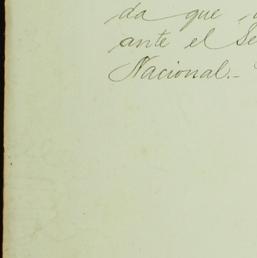 da que
ante el Se
Nacional.-